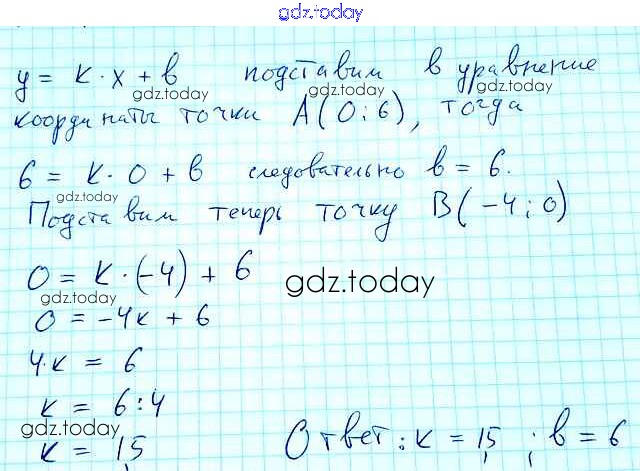 gdz.today
y = k · x + b подставим в уравнение
gdz.today gdz.today gdz.today
координаты точки A(0; 6), тогда
6 = k · 0 + b следовательно b = 6.
gdz.today
Подставим теперь точку B(-4; 0)
0 = k · (-4) + 6
gdz.today gdz.today
0 = -4k + 6
4·k = 6
k = 6 : 4
gdz.today
k = 1,5 Ответ: k = 1,5 ; b = 6